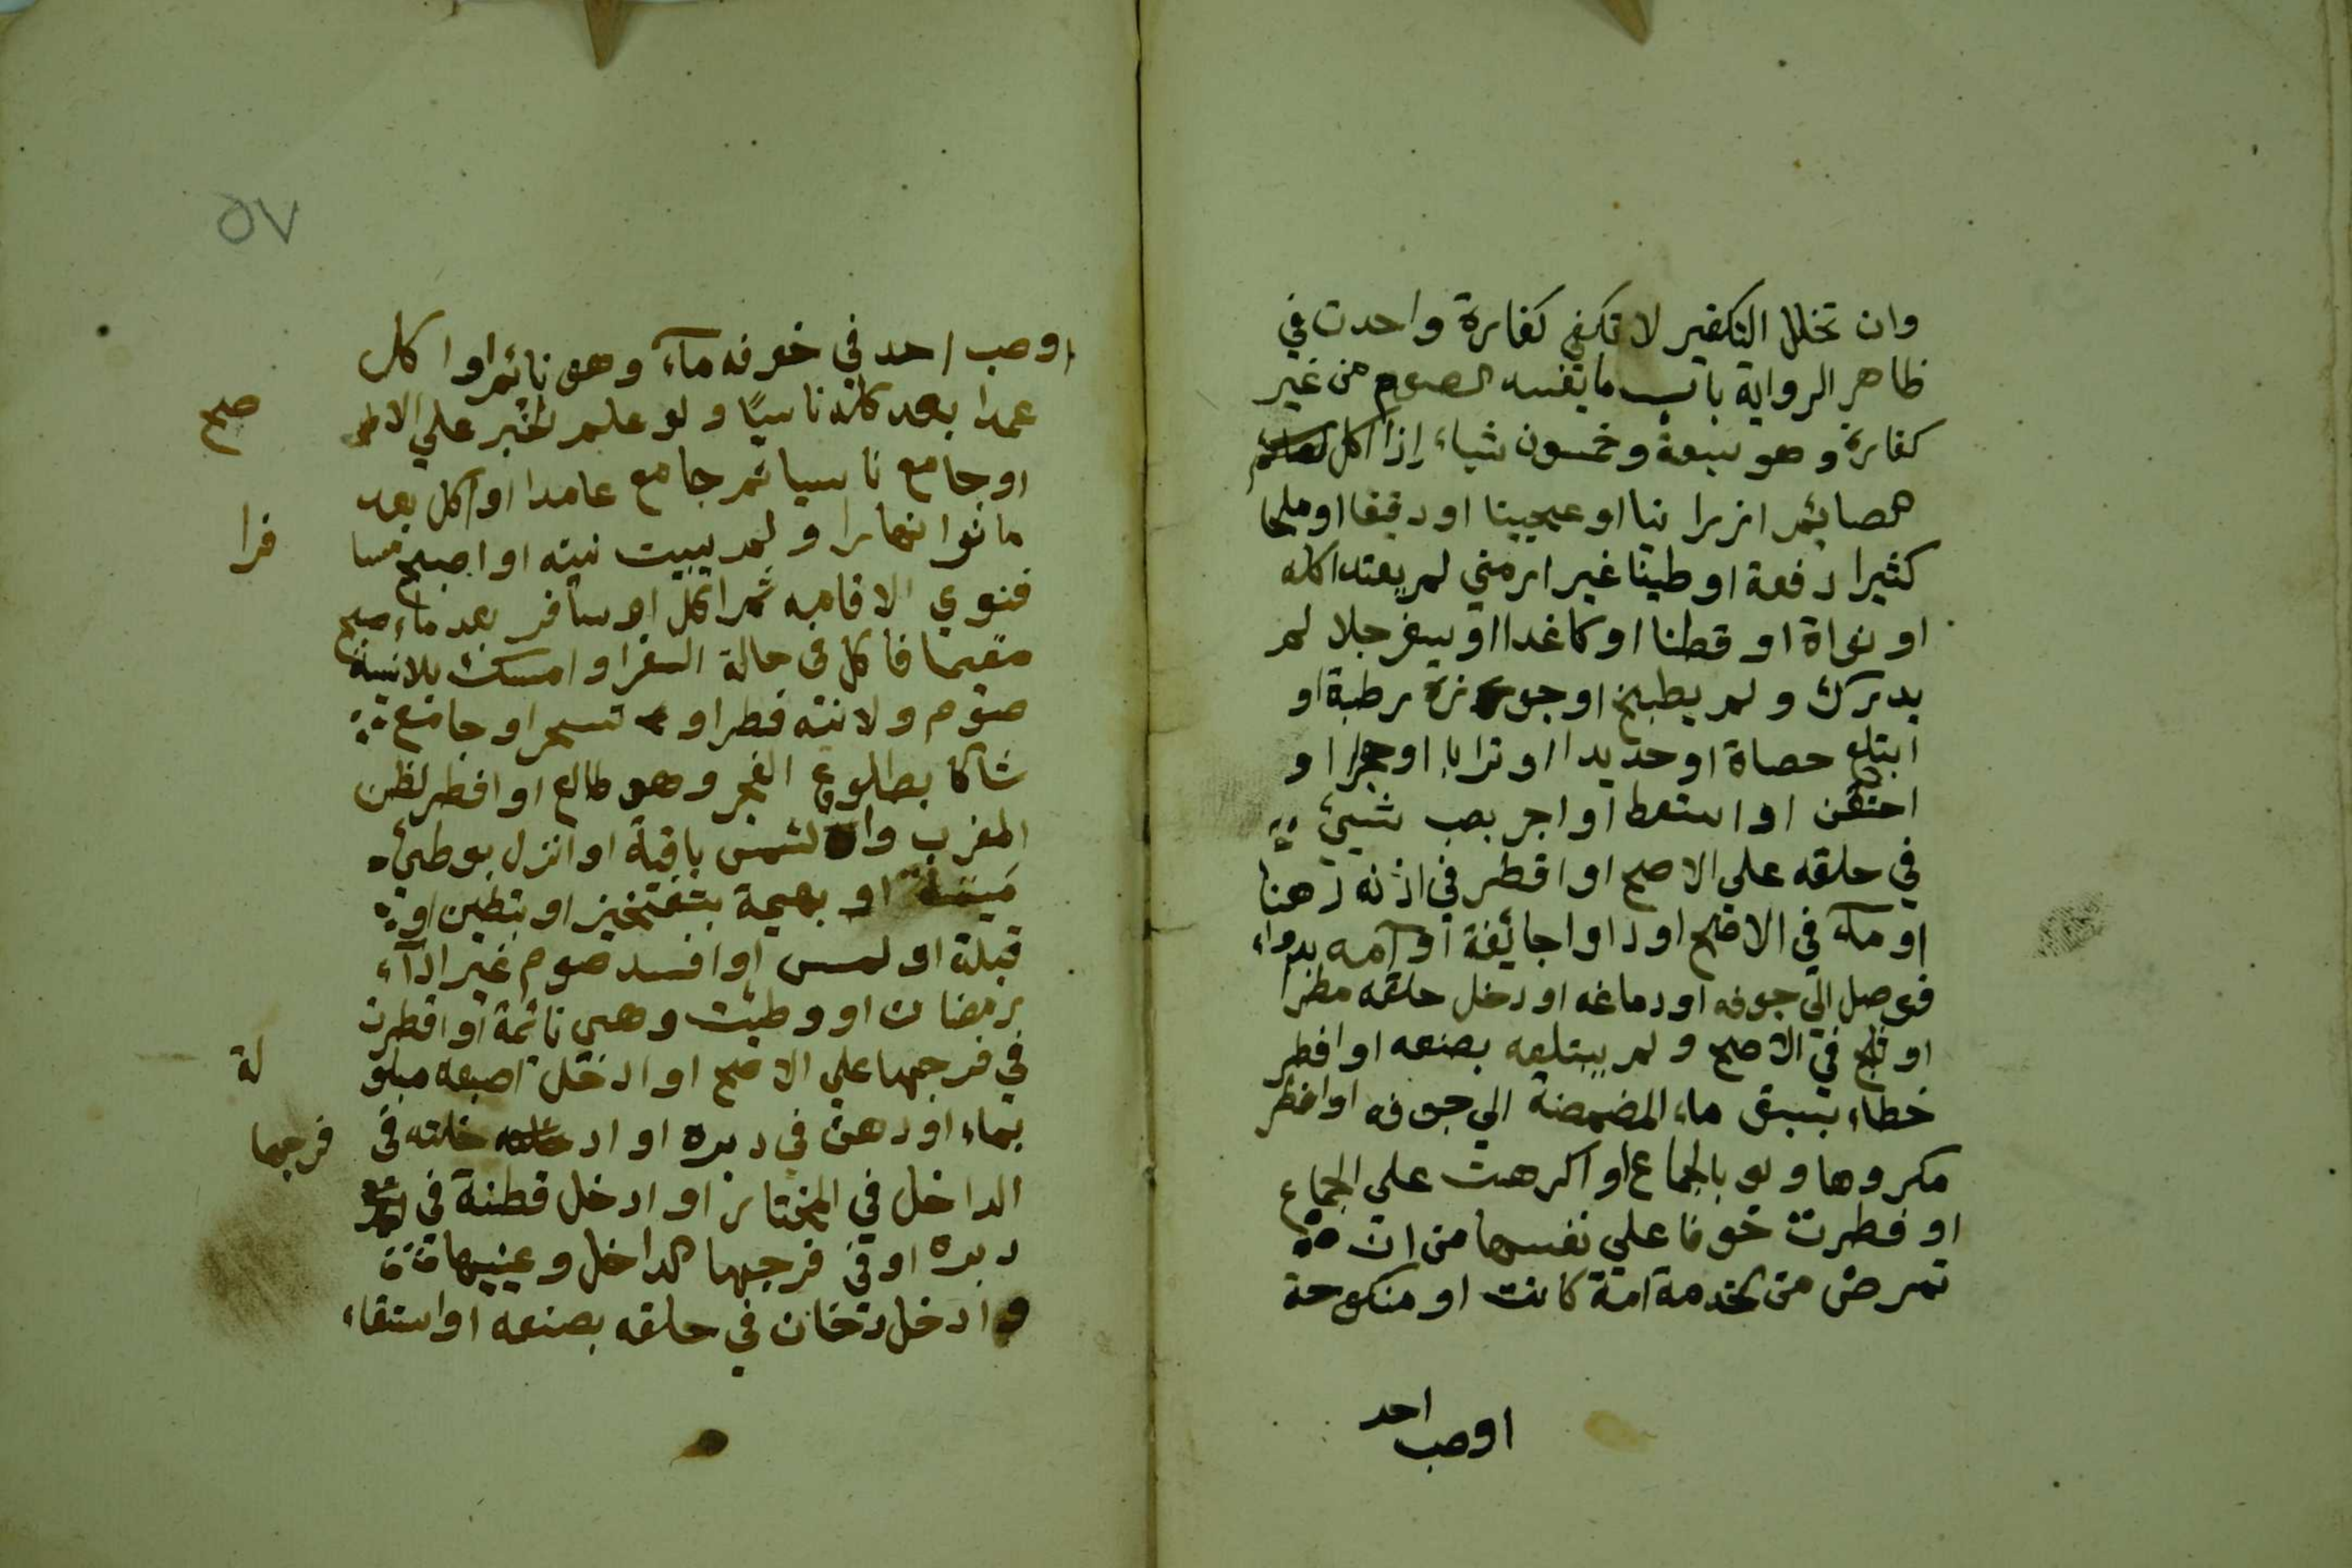 وان تخلل التكفير لا تكفي كفارة واحدت في
ظاهر الرواية باب ما يفسد الصوم من غير
كفارة وهو سبعة وخمسون شياء إذا اكل
الصائم ارزا نيا او عجينا او دقيقا او ملحا
كثيرا دفعة او طينا غير ارمني لم يعتد اكله
او نواة او قطنا او كاغدا او سفرجلا لم
يدرك ولم يطبخ او جوزة رطبة او
ابتلع حصاة او حديدا او ترابا او حجرا او
احتقن او استعط او اجر بصب شيئ
في حلقه علي الاصح او اقطر في اذنه دهنا
او مآء في الاصح او داوا جائفة او آمه بدواء
فوصل الي جوفه او دماغه او دخل حلقه مطرا
او ثلج في الاصح ولم يبتلعه بصنعه او افطر
خطاء بسبق ماء المضمضة الي جوفه او افطر
مكروها ولو بالجماع او اكرهت علي الجماع
او فطرت خوفا علي نفسها من ان
تمرض من الخدمة امة كانت او منكوحة
اوصب احد
٥٧
اوصب احد في خوفه مآء وهو نائم او اكل
عمدا بعد كله ناسيًا ولو علم الخبر علي الا صح
او جامع ناسيا ثم جامع عامدا او اكل بعد
ما نوا نهارا ولم يبيت نيته او اصبح مسا فرا
فنوي الاقامه ثم اكل او سافر بعد ما اصبح
مقيما فاكل في حالة السفر او امسك بلا نية
صوم ولا نية فطر او تسحر او جامع
شاكا بطلوع الفجر وهو طالع او افطر لظن
المغرب والشمس باقية او انزل بوطئ
ميتة او بهيمة بتفتخيز او بتطين او
قبلة او لمس او افسد صوم غير ادآء
رمضان او وطئت وهي نائمة او اقطرت
في فرجها علي الاصح او ادخل اصبعه مبلو لة
بماء او دهن في دبره او اد خلته في فرجها
الداخل في المختار او ادخل قطنة في
دبره او في فرجها الداخل وعيبها
وادخل دخان في حلقه بصنعه او استقاء